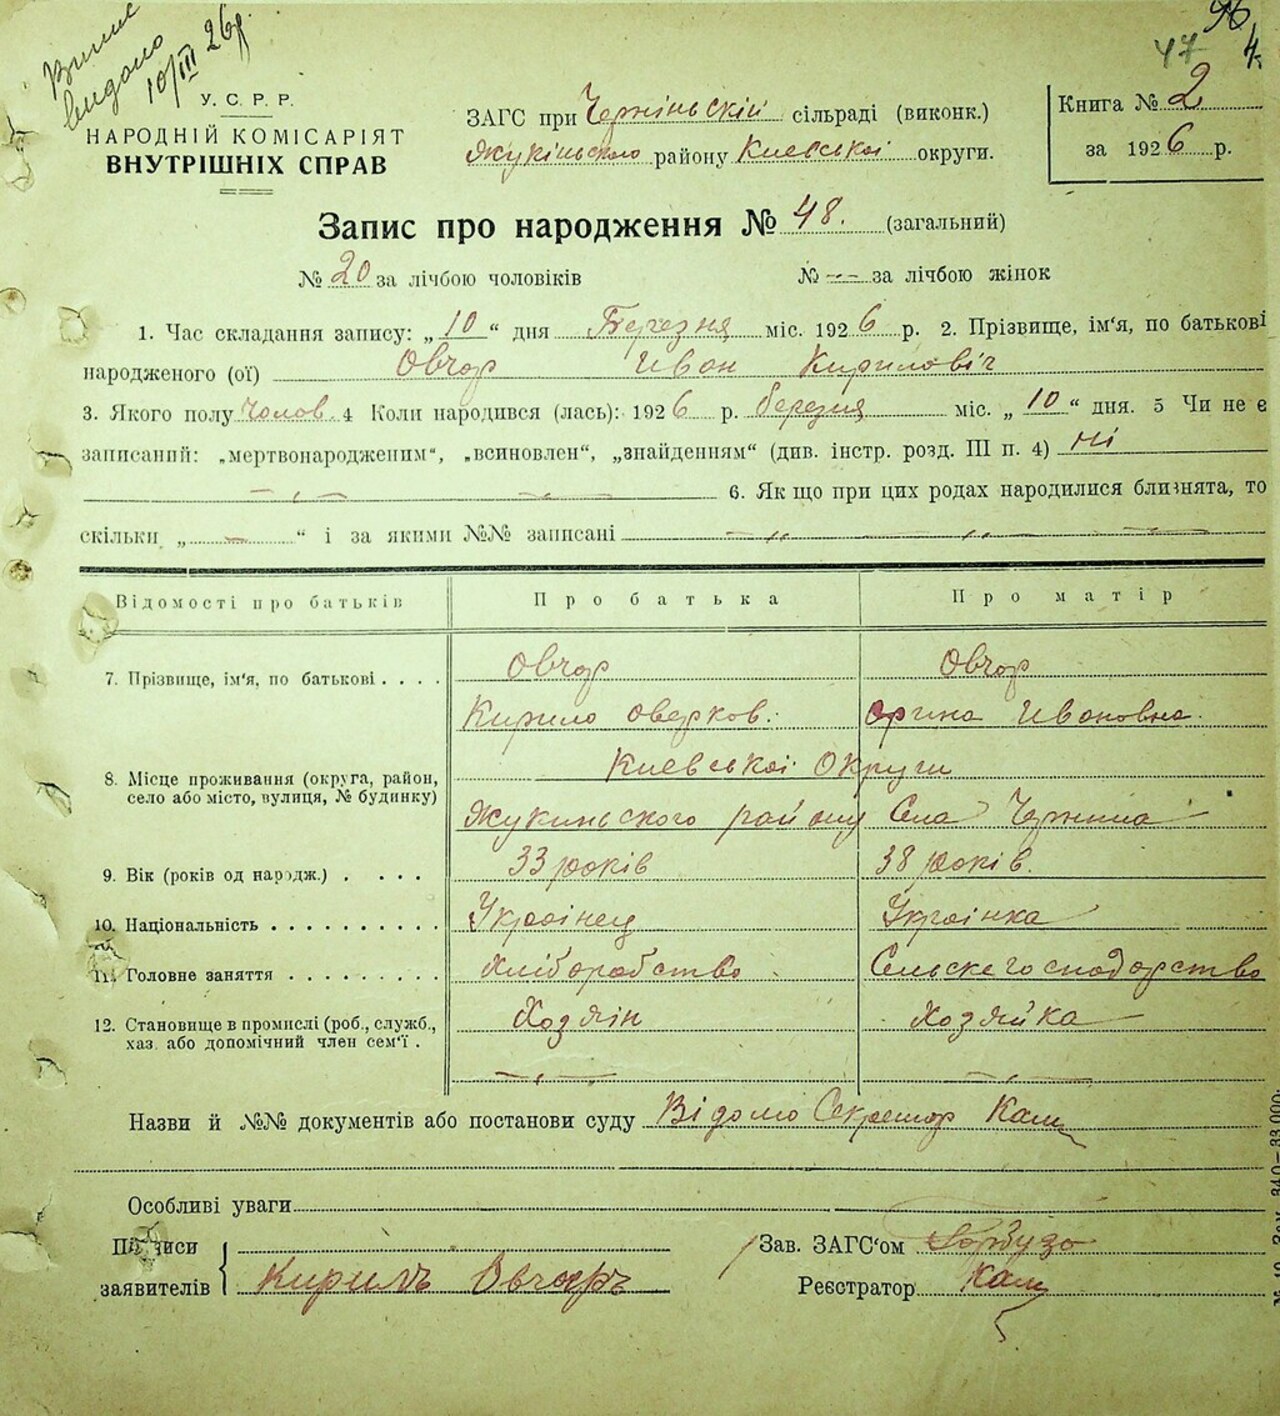 Випис
видано
10/III 26р.
96
47 4.
У. С. Р. Р.
НАРОДНІЙ КОМІСАРІЯТ
ВНУТРІШНІХ СПРАВ
ЗАГС при Черніньскій сільраді (виконк.)
Жукіньского району Киевськоі округи.
Книга № 2
за 1926 р.
Запис про народження № 48. (загальний)
№ 20 за лічбою чоловіків № -- за лічбою жінок
1. Час складання запису: „10“ дня Березня міс. 1926 р. 2. Прізвище, ім'я, по батькові
народженого (ої) Овчар Иван Кирилович
3. Якого полу чолов. 4 Коли народився (лась): 1926 р. березня міс. „10“ дня. 5 Чи не є
записаний: „мертвонародженим“, „всиновлен“, „знайденням“ (див. інстр. розд. III п. 4) ні
6. Як що при цих родах народилися близнята, то
скільки „ - “ і за якими №№ записані
Відомості про батьків Про батька Про матір
7. Прізвище, ім'я, по батькові . . . . Овчар Овчар
Кирило Оверков. Орина Ивановна.
8. Місце проживання (округа, район,
село або місто, вулиця, № будинку)
Киевськоі Округи
Жукиньского району Села Чернина
9. Вік (років од народж.) . . . . 33 років 38 років.
10. Національність . . . . . . . . . . Украінец Украінка
11. Головне заняття . . . . . . . . . Хліборобство Сельскегосподарство
12. Становище в промислі (роб., служб.,
хаз. або допомічний член сем'ї .
Хозяін Хозяйка
Назви й №№ документів або постанови суду Відомо Секретар Кац
Особливі уваги
Підписи
заявителів
Кирилъ Овчаръ
Зав. ЗАГС'ом Гарбузо
Реєстратор Кац